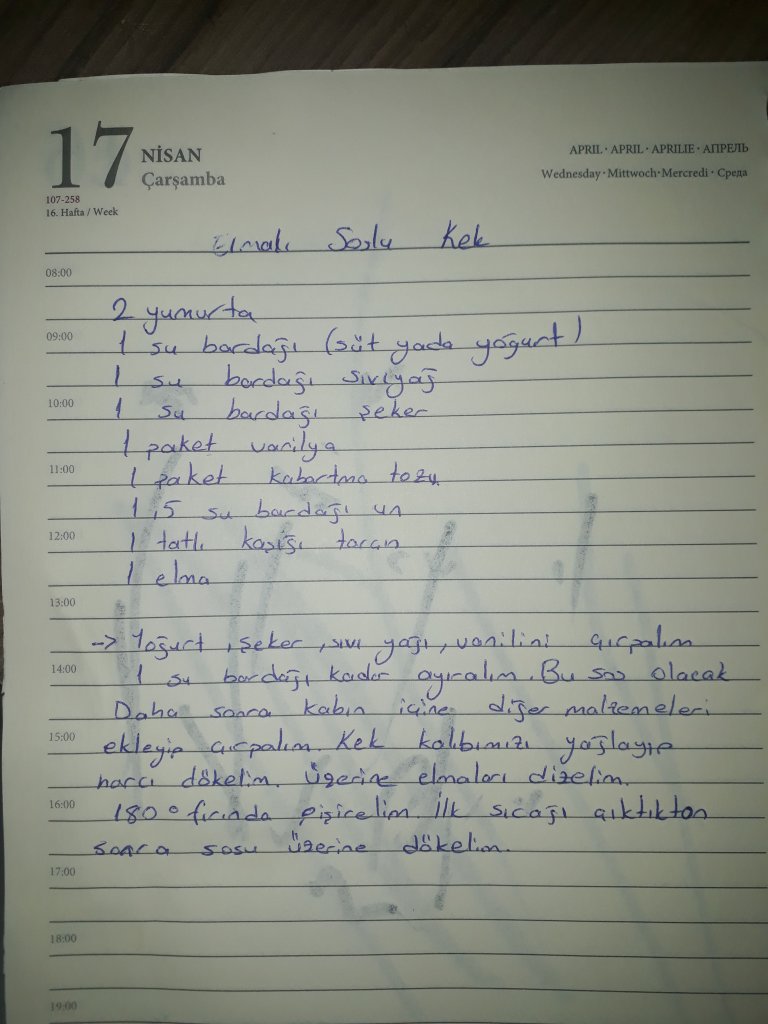 17
NİSAN
Çarşamba
APRIL · APRIL · APRILIE · АПРЕЛЬ
Wednesday · Mittwoch · Mercredi · Среда
107-258
16. Hafta / Week
Elmalı Soslu Kek
08:00
2 yumurta
09:00
1 su bardağı (süt yada yoğurt)
1 su bardağı sıvıyağ
10:00
1 su bardağı şeker
1 paket vanilya
11:00
1 paket kabartma tozu
1,5 su bardağı un
12:00
1 tatlı kaşığı tarçın
1 elma
13:00
-> Yoğurt, şeker, sıvı yağı, vanilini çırpalım
14:00
1 su bardağı kadar ayıralım. Bu sos olacak
Daha sonra kabın içine diğer malzemeleri
15:00
ekleyip çırpalım. Kek kalıbımızı yağlayıp
harcı dökelim. Üzerine elmaları dizelim.
16:00
180° fırında pişirelim. İlk sıcağı çıktıktan
sonra sosu üzerine dökelim.
17:00
18:00
19:00